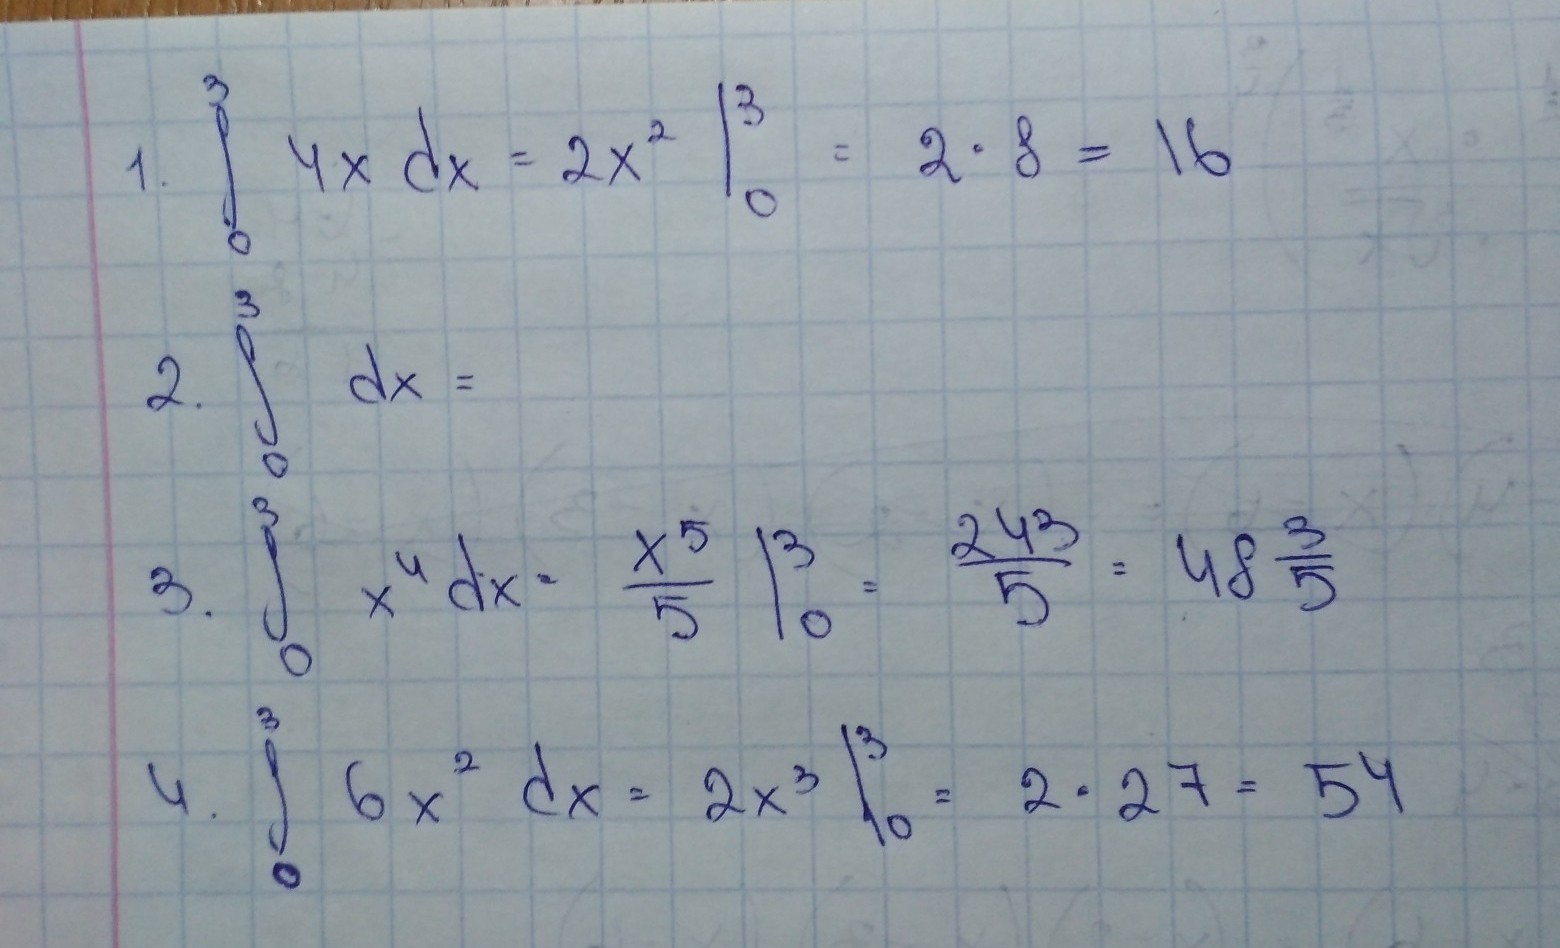 1. ∫₀³ 4x dx = 2x² |₀³ = 2 · 8 = 16
2. ∫₀³ dx =
3. ∫₀³ x⁴ dx = x⁵/5 |₀³ = 243/5 = 48 3/5
4. ∫₀³ 6x² dx = 2x³ |₀³ = 2 · 27 = 54